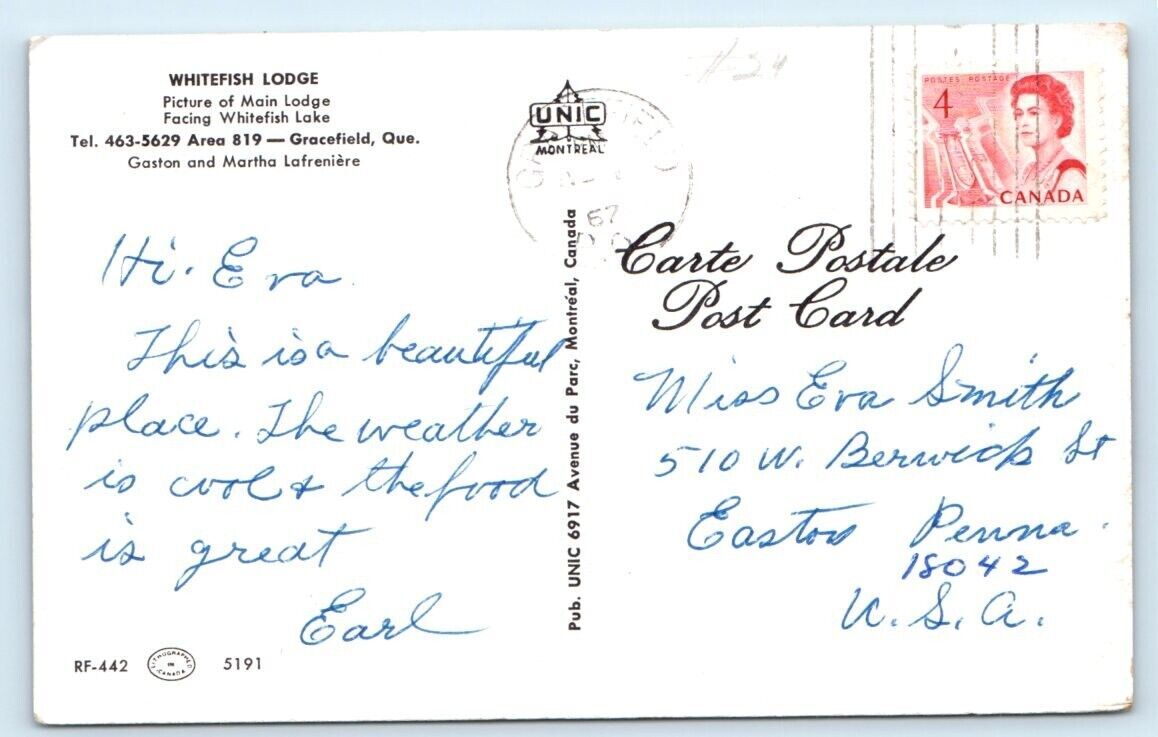 WHITEFISH LODGE
Picture of Main Lodge
Facing Whitefish Lake
Tel. 463-5629 Area 819 — Gracefield, Que.
Gaston and Martha Lafrenière
Hi. Eva
This is a beautiful
place. The weather
is cool & the food
is great
Earl
RF-442
LITHOGRAPHED
IN
CANADA
5191
UNIC
MONTREAL
67
Pub. UNIC 6917 Avenue du Parc, Montréal, Canada
#24
POSTES POSTAGE
4
CANADA
Carte Postale
Post Card
Miss Eva Smith
510 W. Berwick St
Easton Penna.
18042
U.S.A.